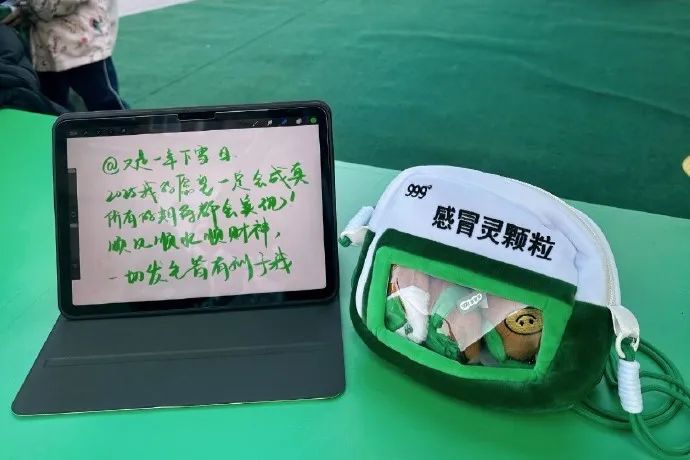 @又是一年下雪日
2025我的愿望一定会成真
所有的期待都会实现！
顺风顺水顺财神，
一切发生皆有利于我
999
感冒灵颗粒